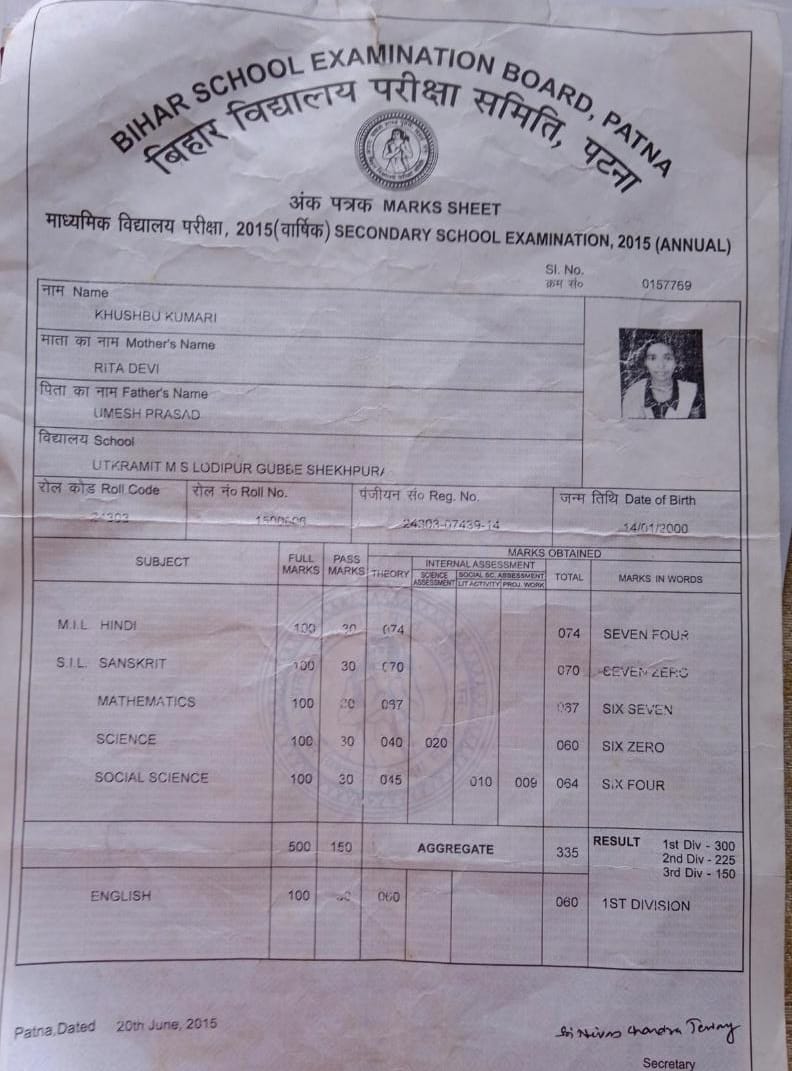 BIHAR SCHOOL EXAMINATION BOARD, PATNA
बिहार विद्यालय परीक्षा समिति, पटना
अंक पत्रक MARKS SHEET
माध्यमिक विद्यालय परीक्षा, 2015(वार्षिक) SECONDARY SCHOOL EXAMINATION, 2015 (ANNUAL)
Sl. No.
क्रम सं० 0157769
नाम Name
KHUSHBU KUMARI
माता का नाम Mother's Name
RITA DEVI
पिता का नाम Father's Name
UMESH PRASAD
विद्यालय School
UTKRAMIT M S LODIPUR GUBBE SHEKHPURA
रोल कोड Roll Code रोल नं० Roll No. पंजीयन सं० Reg. No. जन्म तिथि Date of Birth
24303 24303-07439-14 14/01/2000
MARKS OBTAINED
SUBJECT FULL MARKS PASS MARKS THEORY INTERNAL ASSESSMENT TOTAL MARKS IN WORDS
SCIENCE ASSESSMENT SOCIAL SC. ASSESSMENT
LIT ACTIVITY PROJ. WORK
M.I.L. HINDI 100 30 074 074 SEVEN FOUR
S.I.L. SANSKRIT 100 30 070 070 SEVEN ZERO
MATHEMATICS 100 30 067 067 SIX SEVEN
SCIENCE 100 30 040 020 060 SIX ZERO
SOCIAL SCIENCE 100 30 045 010 009 064 SIX FOUR
500 150 AGGREGATE 335 RESULT 1st Div - 300
2nd Div - 225
3rd Div - 150
ENGLISH 100 060 060 1ST DIVISION
Patna,Dated 20th June, 2015
Secretary